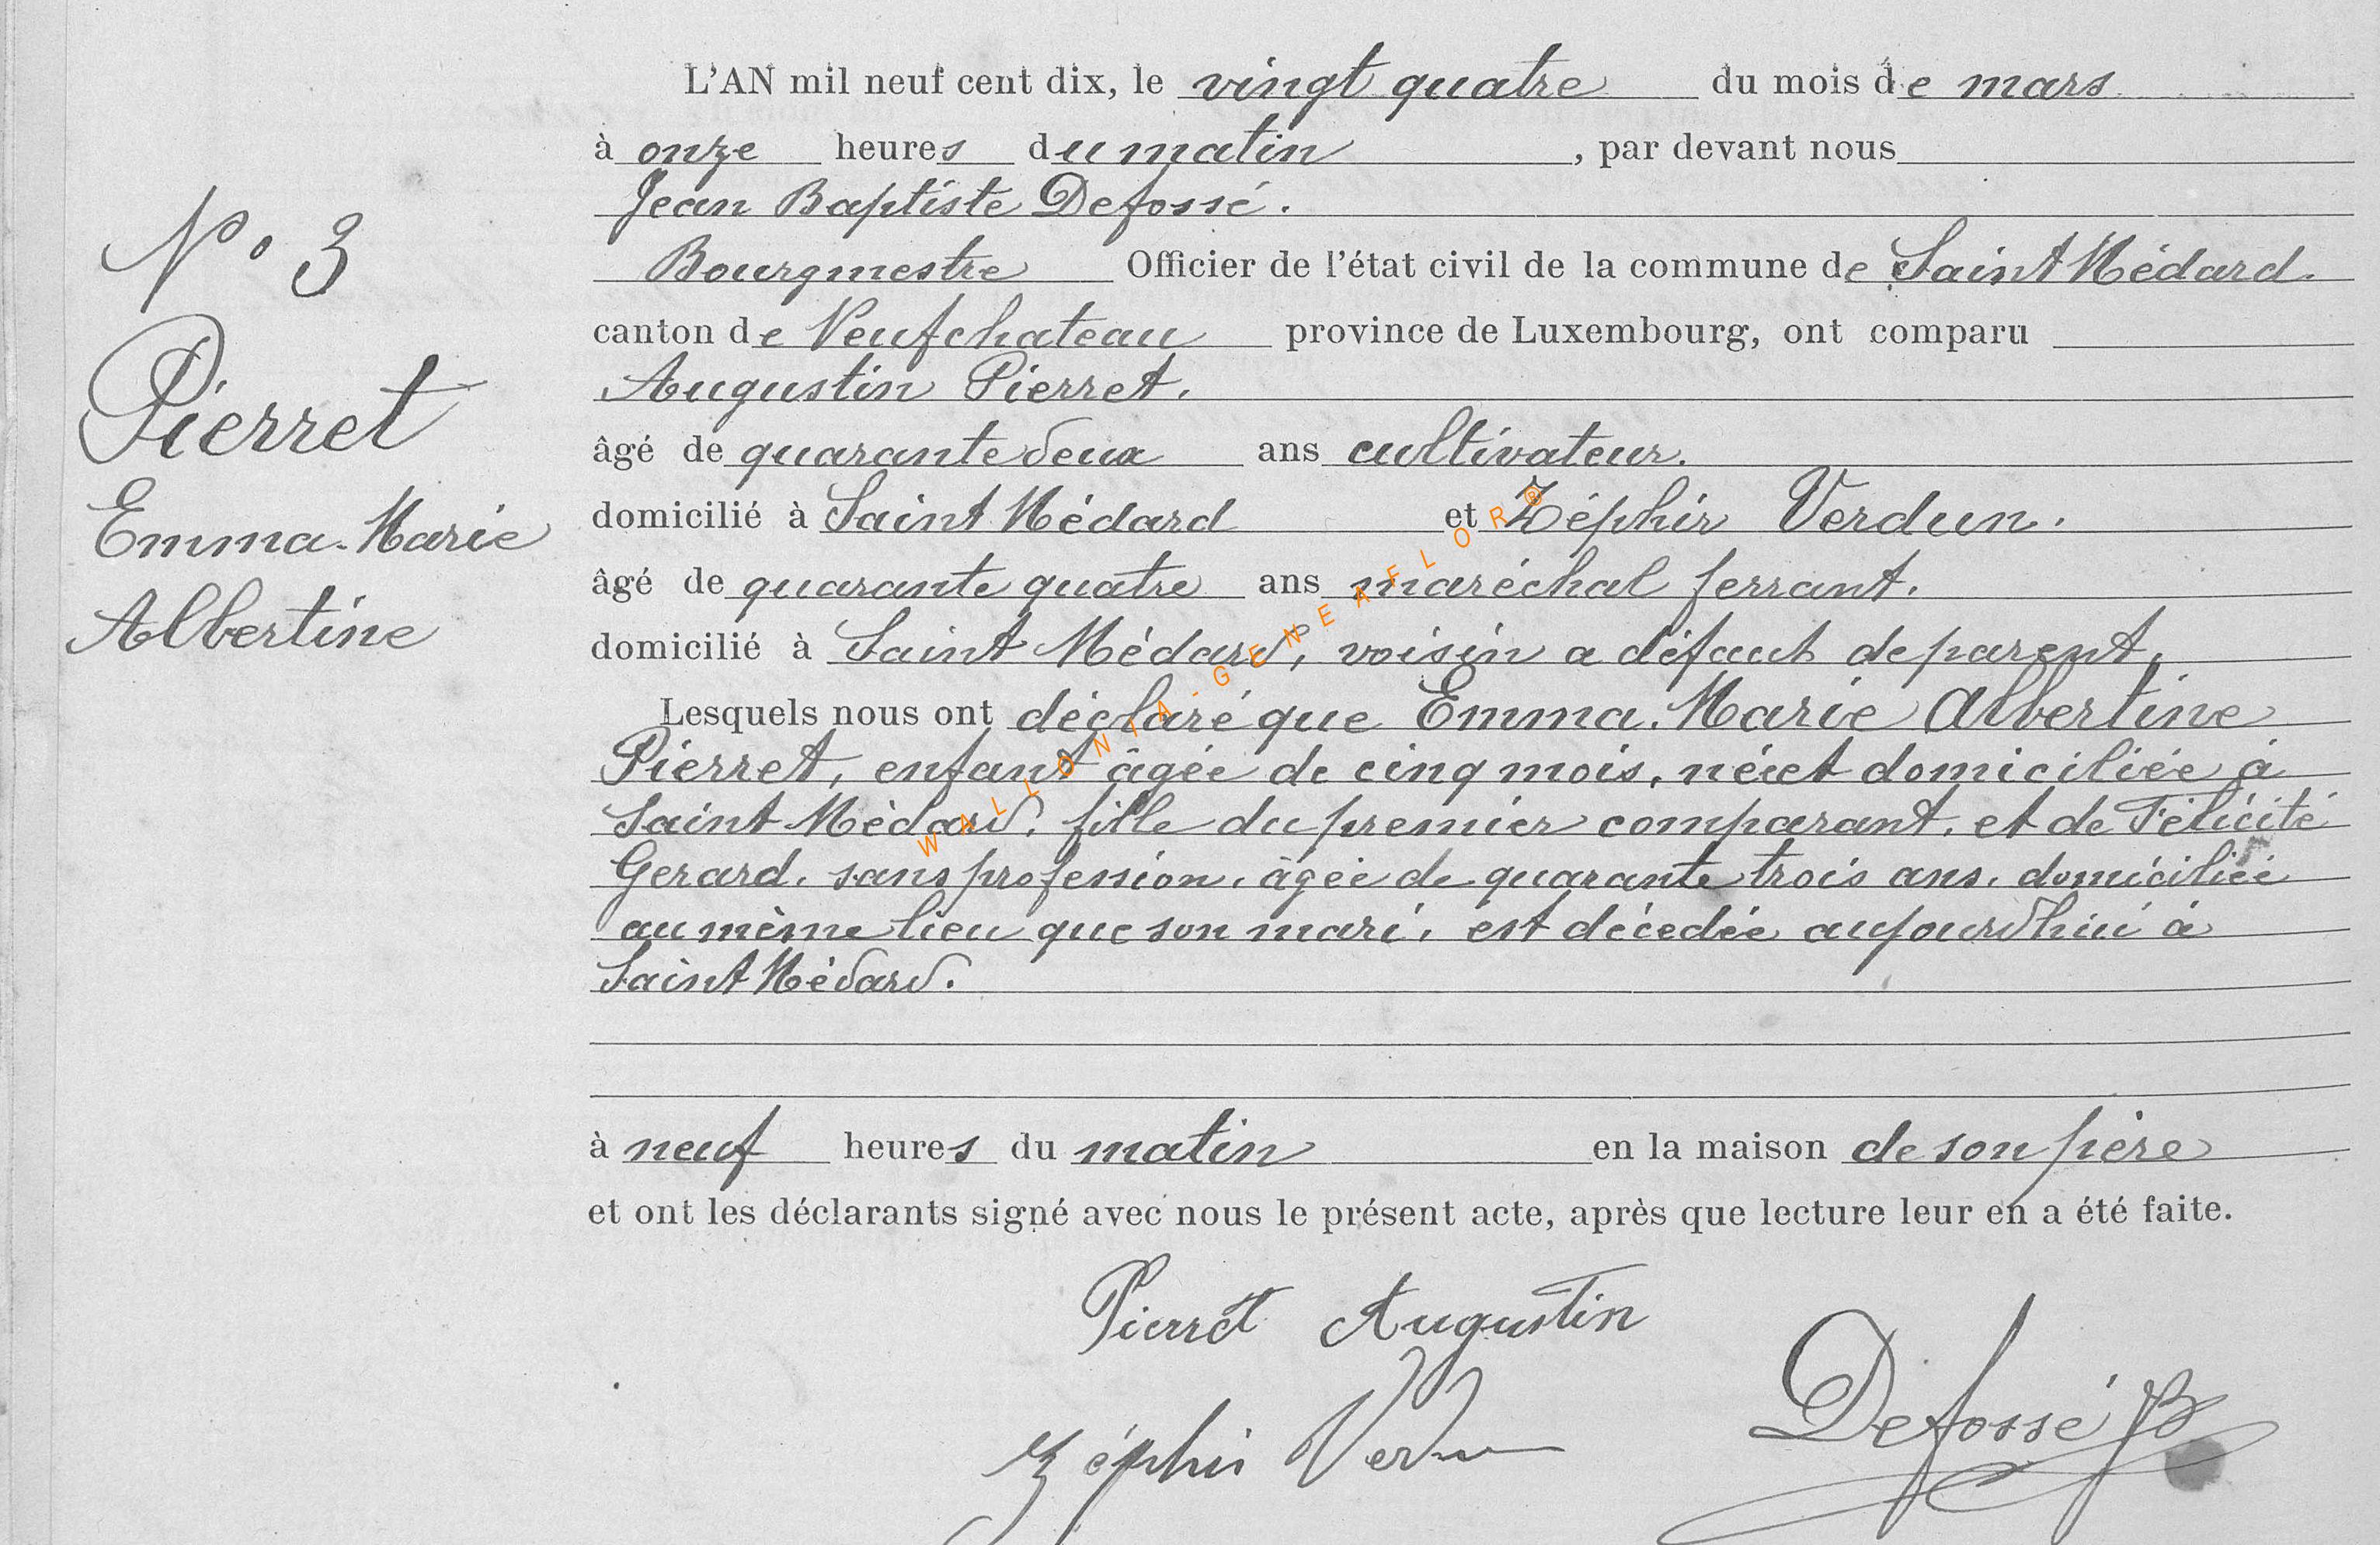 L'AN mil neuf cent dix, le vingt quatre du mois de mars
à onze heures du matin, par devant nous
Jean Baptiste Defossé.
N° 3
Bourgmestre Officier de l'état civil de la commune de Saint Médard.
canton de Neufchateau province de Luxembourg, ont comparu
Augustin Pierret.
Pierret
âgé de quarante deux ans cultivateur.
Emma-Marie
domicilié à Saint Médard et Zéphir Verdun.
âgé de quarante quatre ans maréchal ferrant.
Albertine
domicilié à Saint Médard, voisin a défaut de parent.
Lesquels nous ont déclaré que Emma. Marie Albertine
Pierret, enfant âgée de cinq mois, née et domiciliée à
Saint Médard, fille du premier comparant, et de Félicité
Gerard, sans profession, âgée de quarante trois ans, domiciliée
au même lieu que son mari, est décedée aujourd'hui à
Saint Médard.
à neuf heures du matin en la maison de son père
et ont les déclarants signé avec nous le présent acte, après que lecture leur en a été faite.
Pierret Augustin
Zéphir Verdun
Defossé JB
WALLONIA-GENEAFLOR®